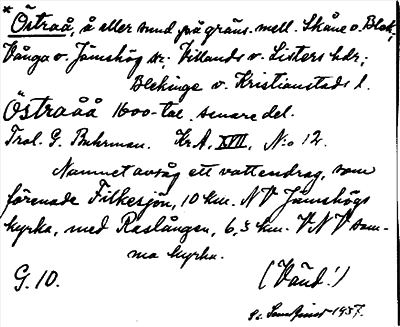 * Östraå, å eller sund på gräns mell. Skåne o. Blek,
Vånga o. Jämshög sr; Villands o. Listers hdr;
Blekinge o. Kristianstads l.
Östraåå 1600-tal, senare del.
Trol. G. Buhrman. Kr A. XVIII, N:o 12.
Namnet avsåg ett vattendrag, som
förenade Filkesjön, 10 km. NV Jämshögs
kyrka, med Raslången, 6,5 km. VNV sam-
ma kyrka.
G. 10. (Vänd!)
1937.